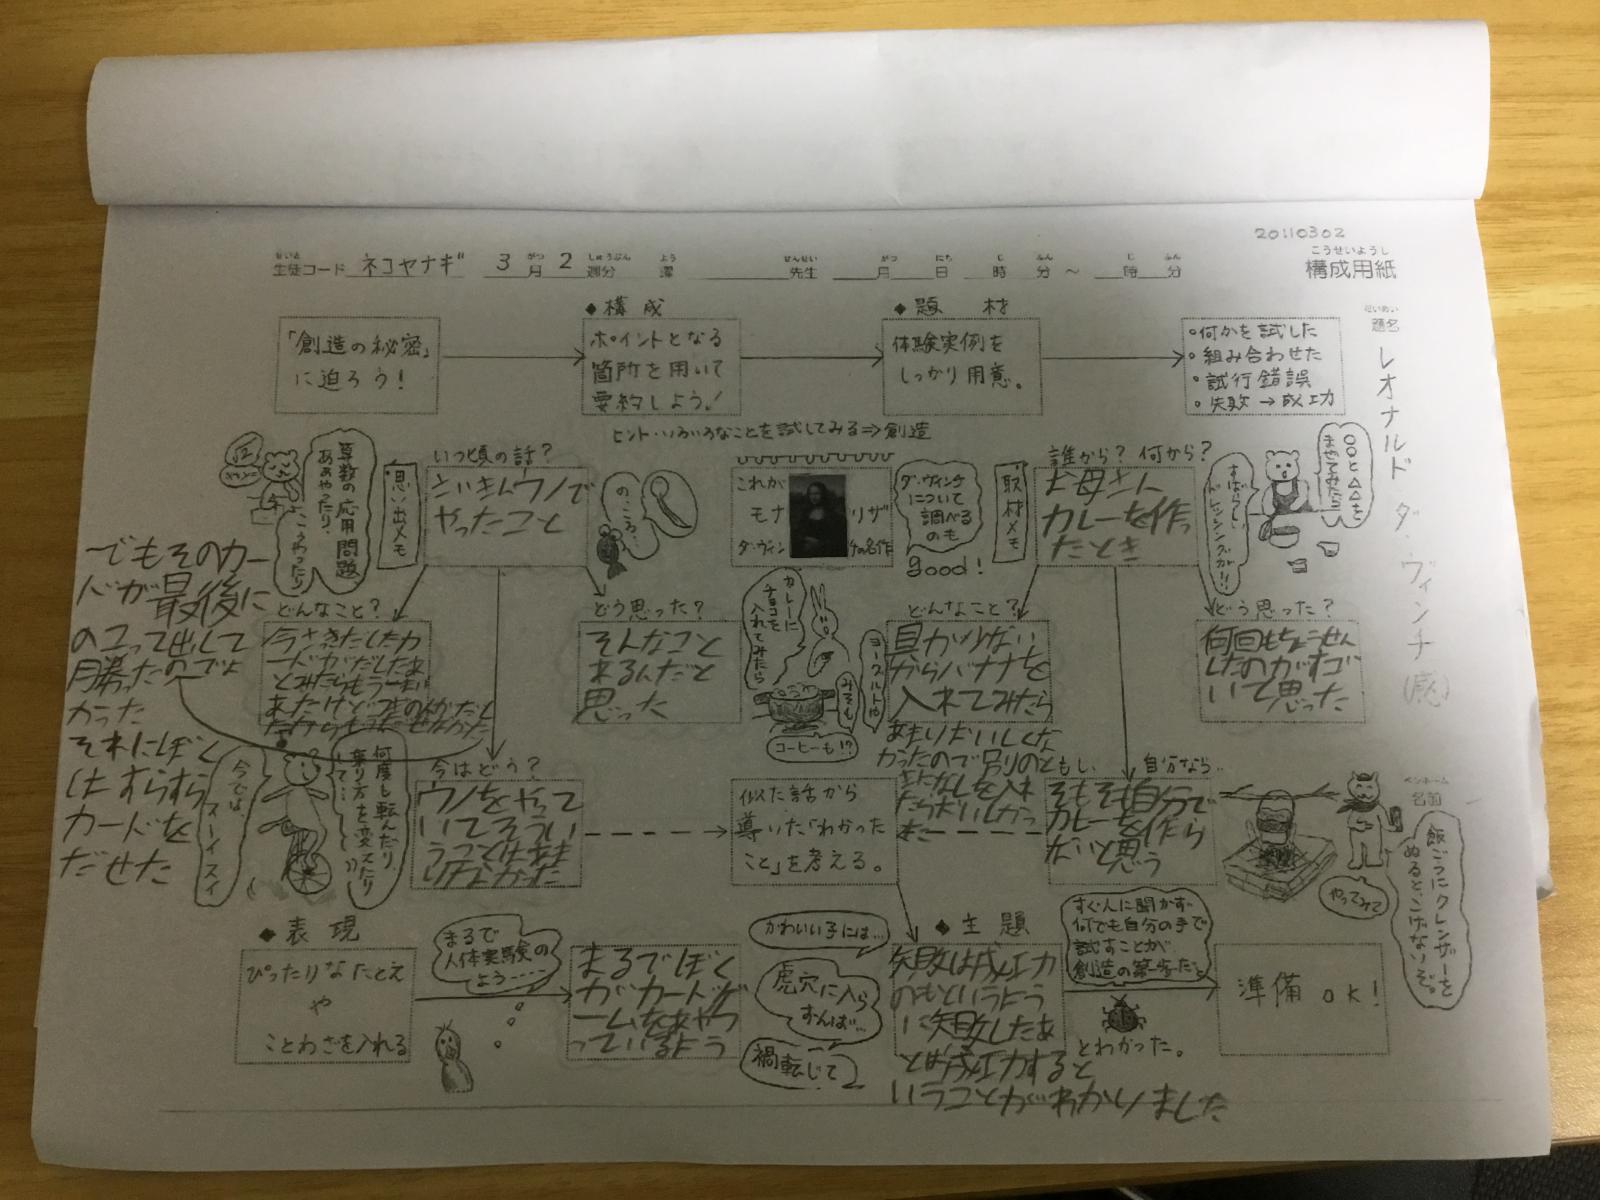 20110302
生徒コード ネコヤナギ 3月 2週分 曜 先生 月 日 時 分〜 時 分
構成用紙
題名
レオナルド ダ・ヴィンチ(感)
「創造の秘密」
に迫ろう!
◆構成
ポイントとなる
箇所を用いて
要約しよう!
◆題材
体験実例を
しっかり用意。
・何かを試した
・組み合わせた
・試行錯誤
・失敗→成功
ヒント・いろいろなことを試してみる⇒創造
算数の応用問題、
ああやったり、
こうやったり
思い出メモ
いつ頃の話?
さいきんウノで
やったこと
のころ…
これが
モナ リザ
ダ・ヴィンチの名作
ダ・ヴィンチ
について
調べる
のも
good!
取材メモ
誰から? 何から?
お母さん
カレーを作っ
たとき
○○と△△を
まぜてみたら
すばらしい
ドレッシングが!!
どんなこと?
でもそのカー
ドが最後に
のこって出して
勝ったのでよ
かった
それにぼく
はすらすら
カードを
だせた
どう思った?
そんなこと
来るんだと
思った
カレーに
チョコを
入れてみたら
ヨーグルトや
みそも
コーヒーも!?
どんなこと?
具が少ない
からバナナを
入れてみたら
あまりおいしくな
かったので
たらおいしかっ
た
どう思った?
何回もちょうせん
したのがすご
いて思った
今では
スーイスイ
何度も転んだり
乗り方を変えたり
して…
今はどう?
ウノをやって
いてそうい
うことはあま
りなかった
似た話から
導いた「わかった
こと」を考える。
自分なら…
そもそも自分で
カレーを作ら
ないと思う
ペンネーム
名前
飯ごうにクレンザーを
ぬるとこげないぞ。
やってみて
◆表現
ぴったりなたとえ
や
ことわざを入れる
まるで
人体実験の
よう……
まるでぼく
がカードゲ
ームをやっ
っているよう
かわいい子には…
虎穴に入ら
ずんば…
禍転じて
◆主題
失敗は成功
のもというよう
に失敗したあ
とは成功すると
いうことがわかりました
すぐ人に聞かず、
何でも自分の手で
試すことが
創造の第一歩だ
とわかった。
準備 OK!